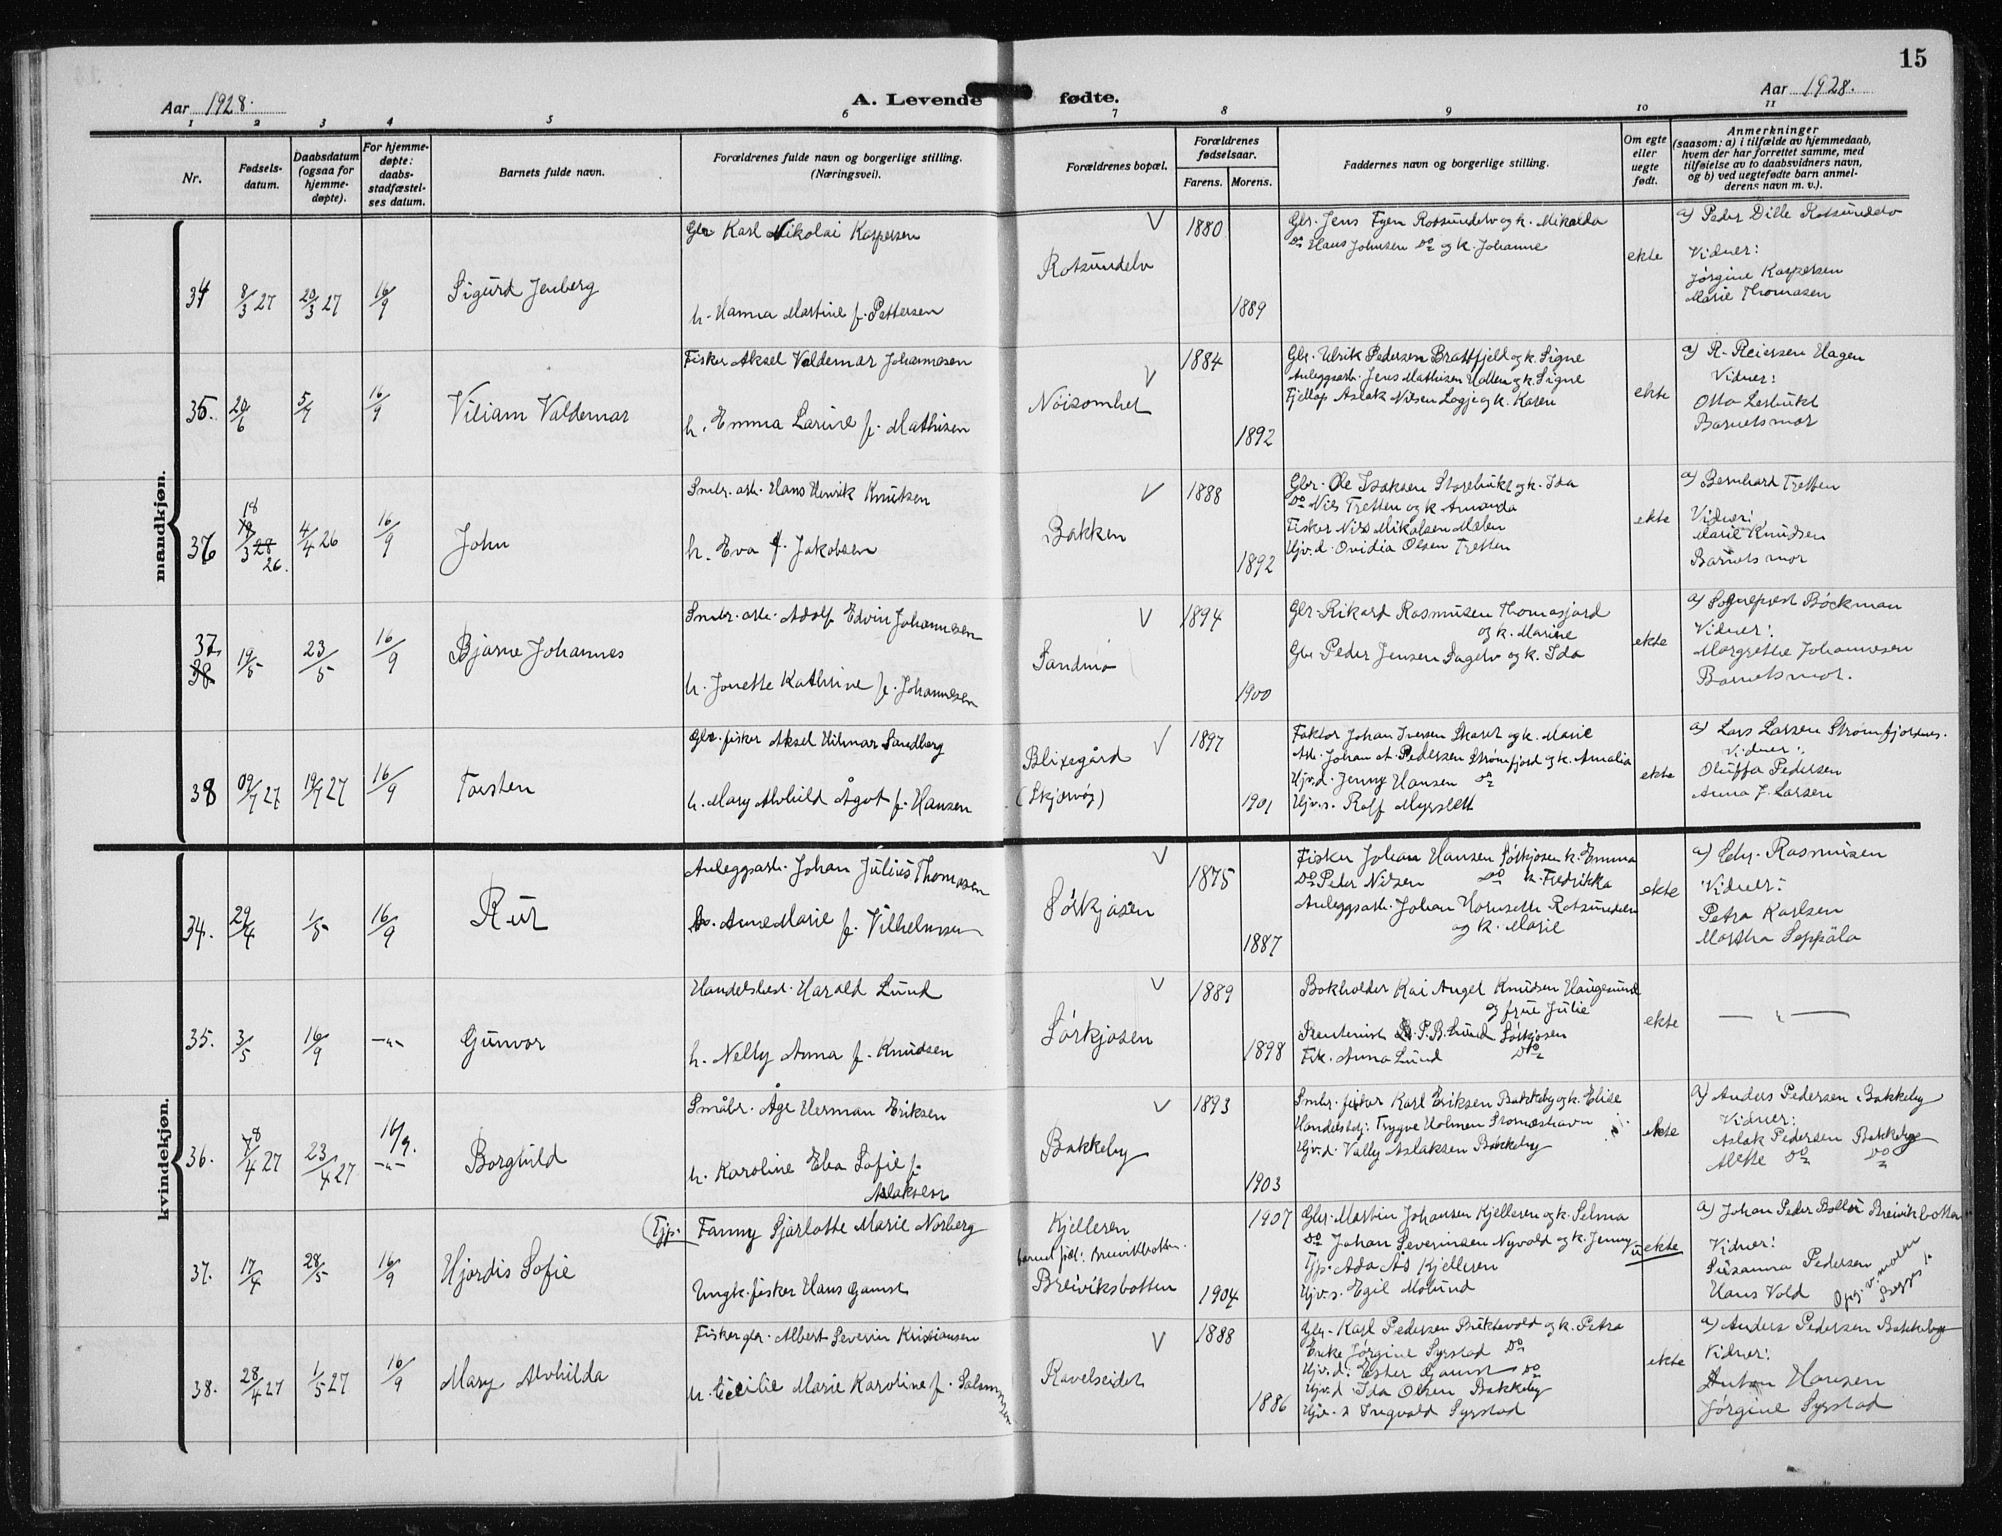 15
Aar 1928.
A. Levende fødte.
Aar 1928.
1 2 3 4 5 6 7 8 9 10 11
Nr.
Fødsels-
datum.
Daabsdatum
(ogsaa for
hjemme-
døpte).
For hjemme-
døpte:
daabs-
stadfæstel-
ses datum.
Barnets fulde navn.
Forældrenes fulde navn og borgerlige stilling.
(Næringsvei).
Forældrenes bopæl.
Forældrenes
fødselsaar.
Farens. Morens.
Faddernes navn og borgerlige stilling.
Om egte
eller
uegte
født.
Anmerkninger
(saasom: a) i tilfælde av hjemmedaab,
hvem der har forrettet samme, med
tilføielse av to daabsvidners navn,
og b) ved uegtefødte barn anmel-
derens navn m. v.).
mandkjøn.
34 8/3 27 20/3 27 16/9 Sigurd Jenberg
Gbr Karl Nikolai Kaspersen
h. Hanna Martine f. Pettersen
Rotsundelv
1880
1889
Gbr. Jens Fyen Rotsundelv og k. Mikalda
Do Hans Johnsen Do og k. Johanne
ekte
a) Peder Dille Rotsundelv
Vidner:
Jørgine Kaspersen
Marie Thomasen
35. 20/6 5/7 16/9 Viliam Valdemar
Fisker Aksel Valdemar Johannesen
h. Emma Larine f. Mathisen
Nöisomhet
1884
1892
Gbr. Ulrik Pedersen Brattfjeld og k. Signe
Anleggsarb. Jens Mathisen Hallen og k. Signe
Fjellop Aslak Nilsen Logje og k. Karen
ekte
a) R. Reiersen Hagen
Vidner:
Otto Lerbukt
Barnets mor
36 18 3 28 26. 4/4 26 16/9 John
Smbr. arb. Hans Henrik Knutsen
h. Eva f. Jakobsen
Bakken
1888
1892
Gbr. Ole Isaksen Storebukt og k. Ida
Do Nils Tretten og k Amanda
Fisker Nils Mikalsen Maben
Ujv. d. Ovidia Olsen Tretten
ekte
a) Bernhard Tretten
Vidner:
Marie Knudsen
Barnets mor
37. 38 19/5 23/5 16/9 Bjarne Johannes
Smbr. arb. Adolf Edvin Johannesen
h. Jonette Kathrine f. Johannesen
Sandmo
1894
1900
Gbr. Rikard Rasmusen Thomasjord
og k. Marine
Gbr Peder Jensen Sagelv og k. Ida
ekte
a) Sogneprest Böckman
Vidner:
Margrethe Johannesen
Barnets mor.
38 09/7 27 19/7 27 16/9 Torsten
Gbr. fisker Aksel Hilmar Sandberg
h. Mary Alvhild Ågot f. Hansen
Blixegård
(Skjervøy)
1897
1901
Faktor Johan Iversen Skaret og k. Marie
Arb. Johan A. Pedersen Strømfjord og k. Amalia
Ujv. d. Jenny Hansen Do
Ujv. s. Rolf Myrslett
ekte
a) Lars Larsen Strømfjordnes.
Vidner:
Oluffa Pedersen
Anna J. Larsen
kvindekjøn.
34. 29/4 1/5 16/9 Rut
Anleggsarb. Johan Julius Thomasen
h. Anne Marie f. Vilhelmsen
Sörkjosen
1875
1887
Fisker Johan Hansen Sörkjosen k. Emma
Do Peder Nilsen Do k. Fredrikka
Anleggsarb. Johan Hornseth Rotsundelv
og k. Marie
ekte
a) Edv. Rasmusen
Vidner:
Petra Karlsen
Martha Seppälä
35. 3/5 16/9 —"— Gunvor
Handelsbest. Harald Lund
h. Nelly Anna f. Knudsen
Sörkjosen
1889
1898
Bokholder Kai Angel Knudsen Haugesund
og frue Julie
P. B. Lund Sörkjosen
Frk. Anna Lund Do
ekte
— " —
36. 8/4 27 23/4 27 16/9. —"— Borghild
Småbr. Åge Herman Eriksen
h. Karoline Eba Sofie f.
Aslaksen
Bakkeby
1893
1903
Smbr. fisker Karl Eriksen Bakkeby og k. Elise
Handelsbetj: Trygve Holmen Stornæshavn
Ujv. d. Vally Aslaksen Bakkeby
ekte
a) Anders Pedersen Bakkeby
Vidner:
Aslak Pedersen Bakkeby
Alette Do Do
37. 17/4 28/5 16/9 Hjordis Sofie
(Tjp. Fanny Sjarlotte Marie Norberg
Ungk. fisker Hans Gamst
Kjelleren
barnet föd: Breivikbotten.
Breiviksbotten
1907
1904
Gbr. Martin Johansen Kjelleren og k. Selma
Do Johan Severinsen Nyvold og k. Jenny
Tjp. Ada Ås Kjelleren
Ujv. s. Egil Molund
uekte
a) Johan Peder Breivikbotten
Vidner:
Susanna Pedersen
Hans Vold
Opg. v. moren
Begges 1.
38. 28/4 27 1/5 27 16/9 Mary Alvhilda
Fisker gbr. Albert Severin Kristiansen
h. Cecilie Marie Karoline f. Salamonsen
Ravelseidet
1888
1886
Gbr. Karl Pedersen Buktevold og k. Petra
Enke Jørgine Syrstad Do
Ujv. d. Ester Gamst Do
Ujv. d. Ida Olsen Bakkeby
Ujv. s Ingvald Syrstad
ekte
a) Anders Pedersen Bakkeby
Vidner:
Anton Hansen
Jørgine Syrstad